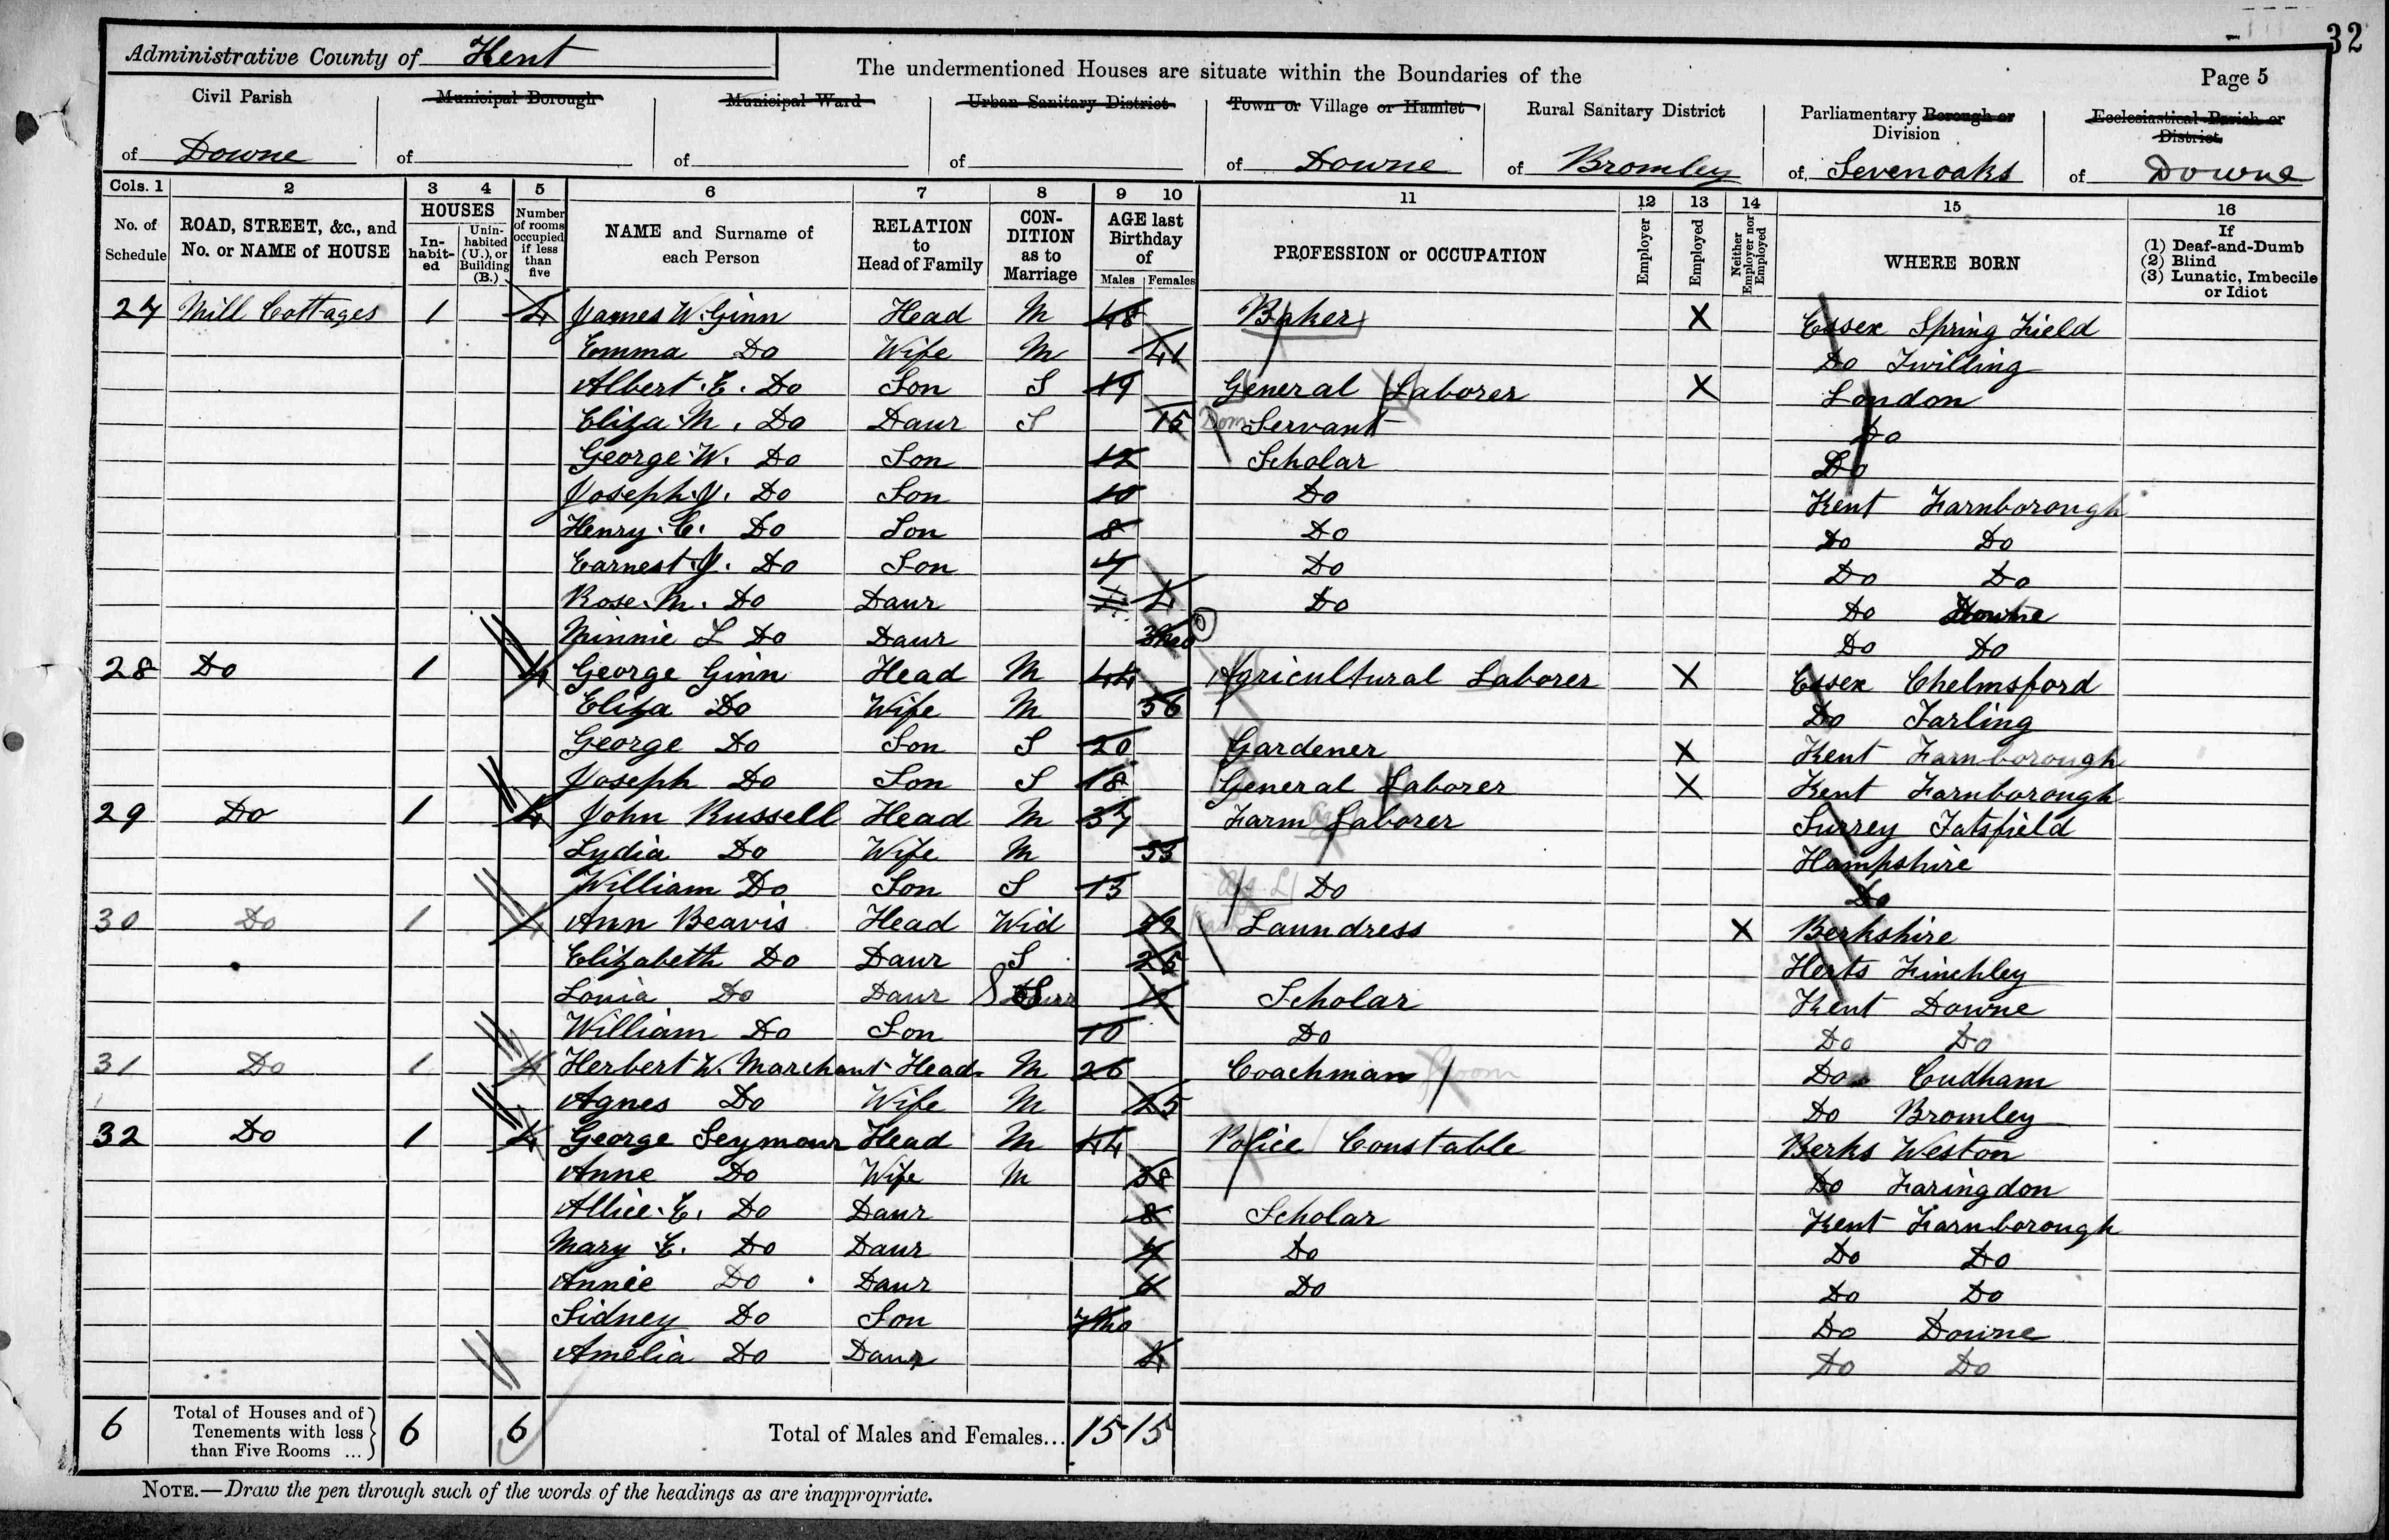 32
Administrative County of Kent
The undermentioned Houses are situate within the Boundaries of the
Page 5
Civil Parish of Downe
Municipal Borough of
Municipal Ward of
Urban Sanitary District of
Town or Village or Hamlet of Downe
Rural Sanitary District of Bromley
Parliamentary Borough or Division of Sevenoaks
Ecclesiastical Parish or District of Downe
Cols. 1 2 3 4 5 6 7 8 9 10 11 12 13 14 15 16
No. of Schedule
ROAD, STREET, &c., and No. or NAME of HOUSE
HOUSES
Inhabited
Uninhabited (U.), or Building (B.)
Number of rooms occupied if less than five
NAME and Surname of each Person
RELATION to Head of Family
CONDITION as to Marriage
AGE last Birthday of
Males Females
PROFESSION or OCCUPATION
Employer
Employed
Neither Employer nor Employed
WHERE BORN
If (1) Deaf-and-Dumb (2) Blind (3) Lunatic, Imbecile or Idiot
27 Mill Cottages 1 4 James W. Ginn Head M 48 Baker X Essex Spring Field
Emma Do Wife M 41 Do Twilding
Albert. E. Do Son S 19 General Laborer X London
Eliza M. Do Daur S 15 Dom Servant Do
George W. Do Son 12 Scholar Do
Joseph. J. Do Son 10 Do Kent Farnborough
Henry. C. Do Son 8 Do Do Do
Earnest. J. Do Son 7 Do Do Do
Rose. M. Do Daur 4 Do Do Downe
Minnie L Do Daur 3mo Do Do
28 Do 1 4 George Ginn Head M 44 Agricultural Laborer X Essex Chelmsford
Eliza Do Wife M 56 Do Tarling
George Do Son S 20 Gardener X Kent Farnborough
Joseph Do Son S 18 General Laborer X Kent Farnborough
29 Do 1 4 John Russell Head M 37 Farm Laborer Surrey Tatsfield
Lydia Do Wife M 33 Hampshire
William Do Son S 13 Ag. L Do Do
30 Do 1 4 Ann Beavis Head Wid 52 Laundress X Berkshire
Elizabeth Do Daur S 25 Herts Finchley
Louia Do Daur Scholar Kent Downe
William Do Son 10 Do Do Do
31 Do 1 4 Herbert W. Marchant Head M 26 Coachman Groom Do Cudham
Agnes Do Wife M 25 Do Bromley
32 Do 1 4 George Seymour Head M 44 Police Constable Berks Weston
Anne Do Wife M 38 Do Faringdon
Allice. E. Do Daur 8 Scholar Kent Farnborough
Mary E. Do Daur 7 Do Do Do
Annie Do Daur Do Do Do
Sidney Do Son 7mo Do Downe
Amelia Do Daur Do Do
6 Total of Houses and of Tenements with less than Five Rooms ... 6 6 Total of Males and Females... 15 15
NOTE.—Draw the pen through such of the words of the headings as are inappropriate.